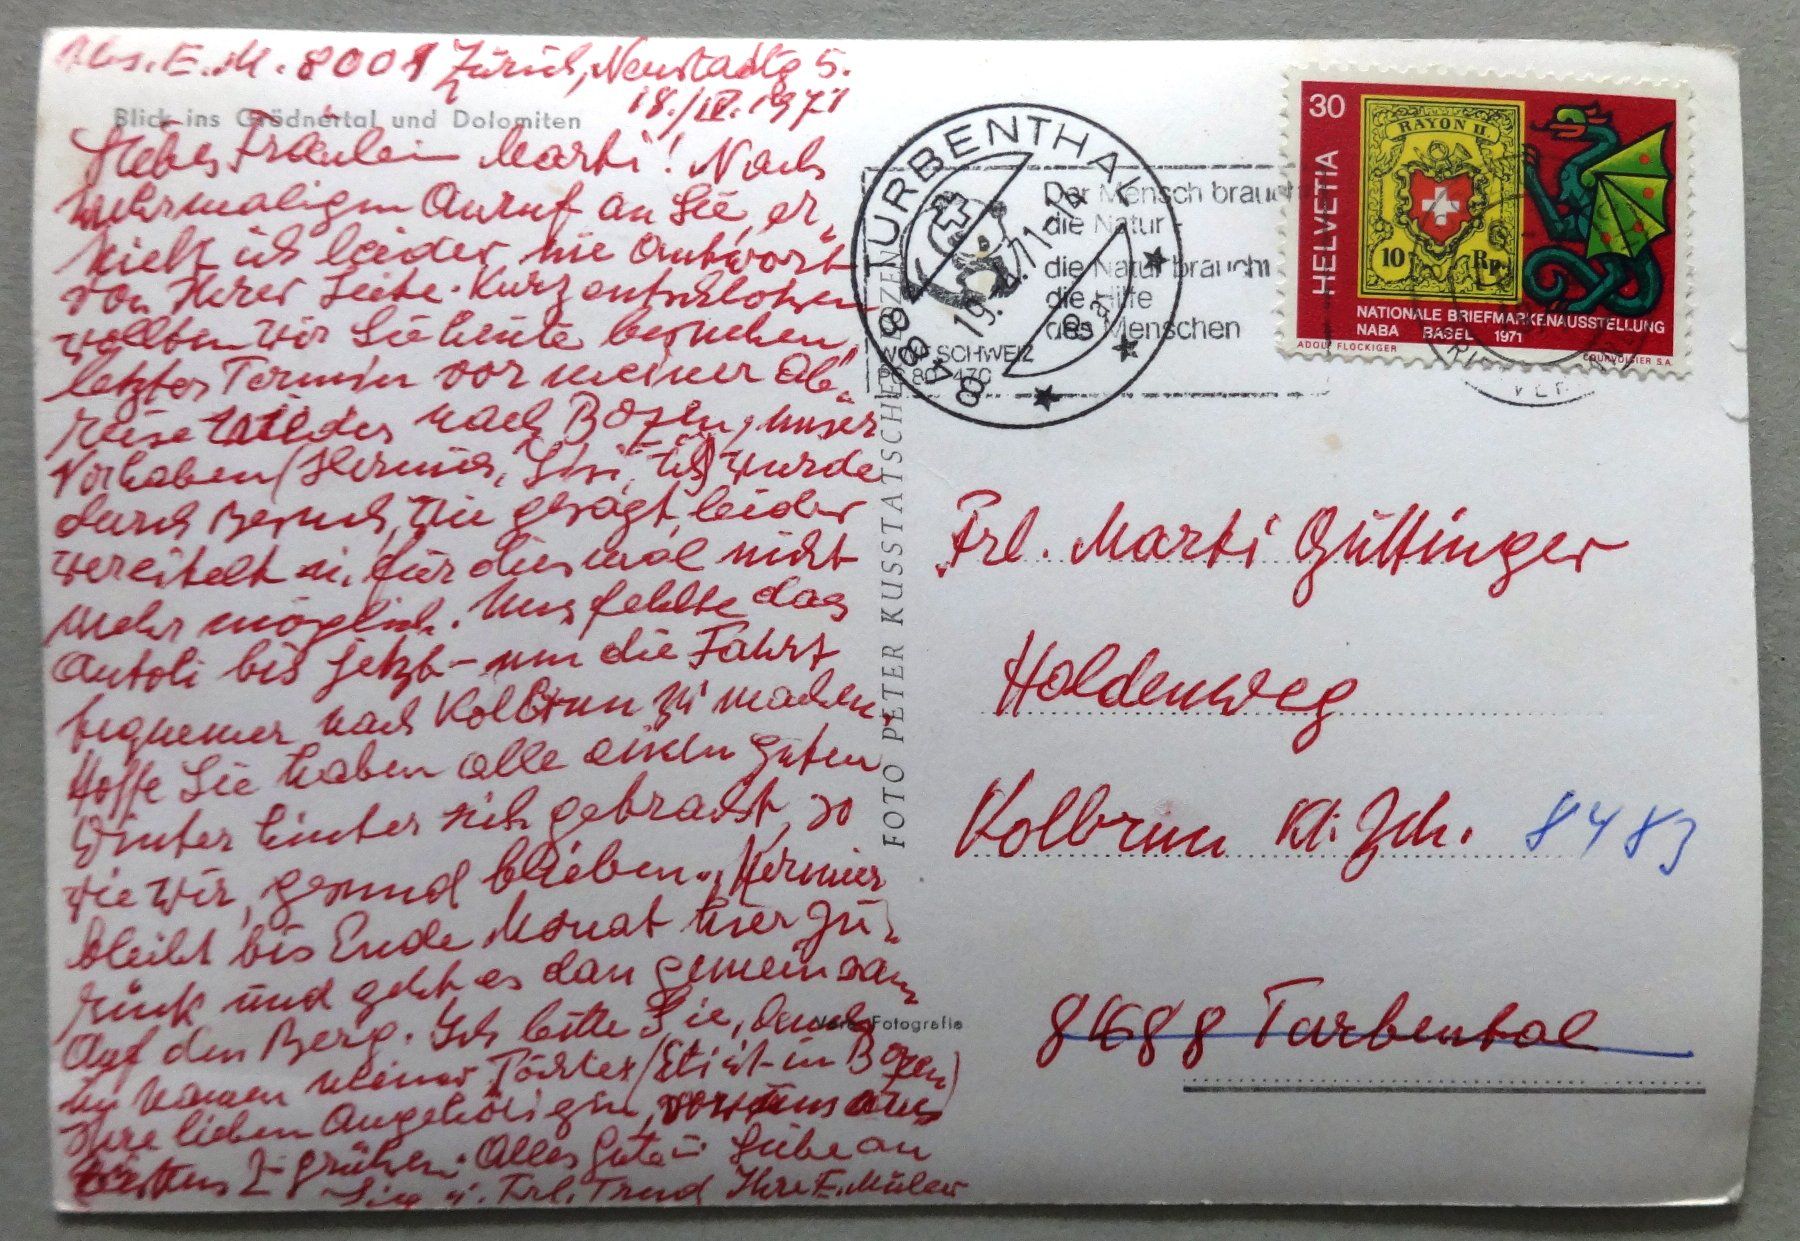 Abs. E. M. 8001 Zürich, Neustadtg 5.
18./IV. 1971
Blick ins Grödnertal und Dolomiten
Liebes Fräulein Marti! Nach
mehrmaligen Anruf an Sie, er-
hielt ich leider nie Antwort
von Ihrer Seite. Kurz entschlossen
wollten wir Sie heute besuchen,
letzter Termin vor meiner Ab-
reise wieder nach Bozen, unser
Vorhaben (Hermine, Isi, ich) wurde
durch Besuch, wie gesagt, leider
vereitelt u. für diesmal nicht
mehr möglich. Uns fehlte das
Autoli bis jetzt - um die Fahrt
bequemer nach Kolbrun zu machen.
Hoffe Sie haben alle einen guten
Winter hinter sich gebracht, so
wie wir, gesund blieben.
bleibt bis Ende Monat hier zu-
rück und geht es dan gemeinsam
Auf den Berg. Ich bitte Sie, auch
im Namen meiner Tochter in Bozen)
Ihre lieben Angehörigen, von uns
zu grüßen. Alles Gute u. Liebe an
Sie u. Frl. Trud Ihre E. Müller
FOTO PETER KUSSTATSCHER BOZEN
Vera Fotografie
8488 TURBENTHAL
19.4.71
WWF SCHWEIZ
PC 80-470
Der Mensch braucht
die Natur -
die Natur braucht
die Hilfe
des Menschen
30
HELVETIA
RAYON II.
10 Rp.
NATIONALE BRIEFMARKENAUSSTELLUNG
NABA BASEL 1971
ADOLF FLÜCKIGER
COURVOISIER S.A.
Frl. Marti Güttinger
Holdenweg
Kolbrun Kt. Zch. 8483
8488 Turbental